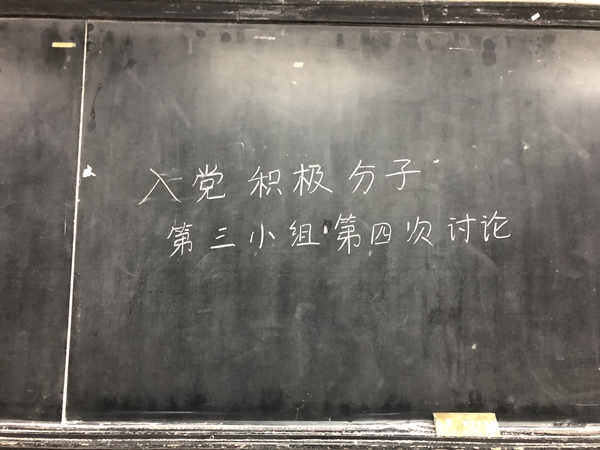 入党积极分子
第三小组第四次讨论